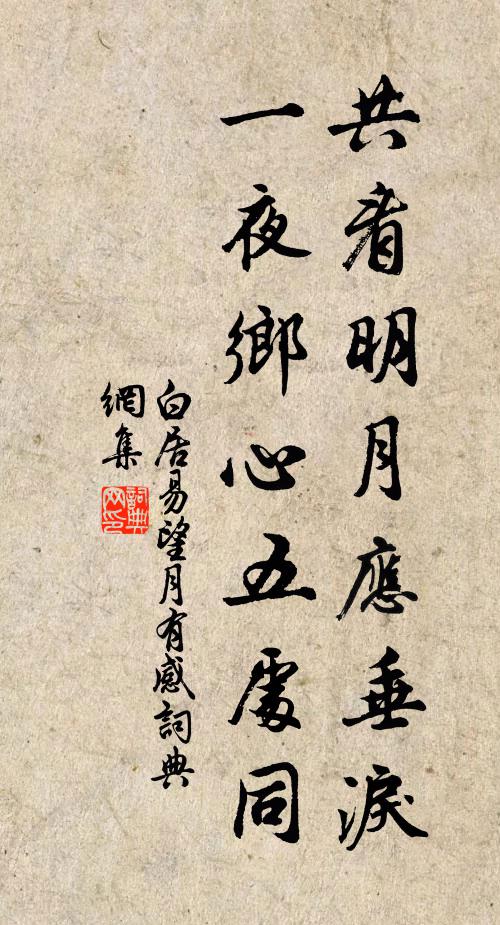 共看明月應垂淚
一夜鄉心五處同
白居易望月有感詞典
網集
詞典
网印